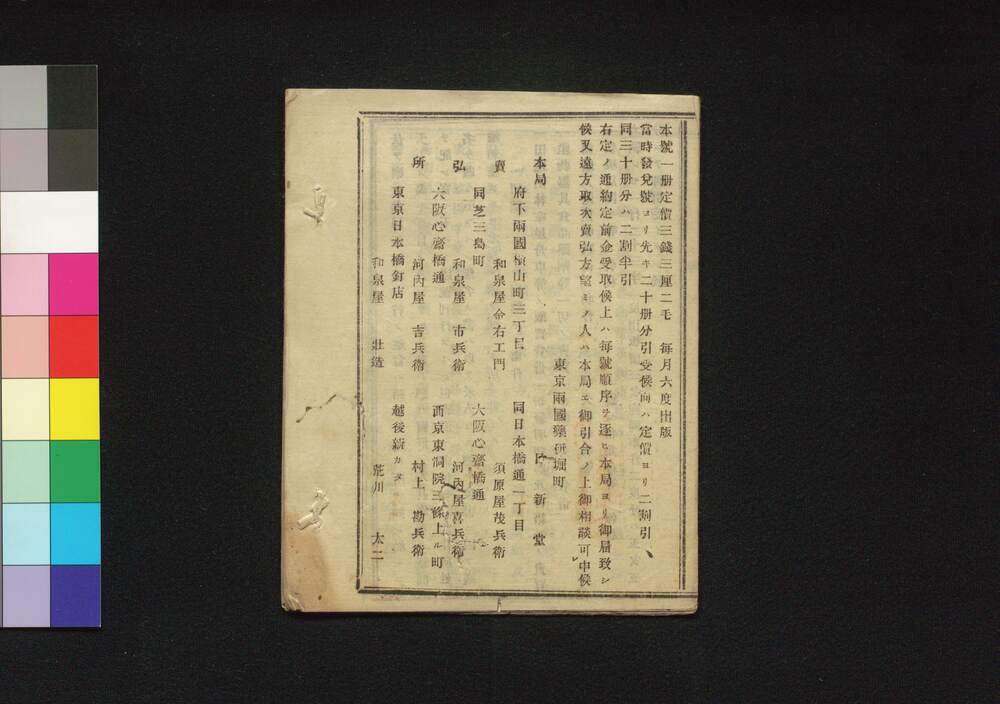 本號一册定價三錢三厘二毛　毎月六度出版
當時發兌號ヨリ先キ二十册分引受候向ハ定價ヨリ二割引、
同三十册分ハ二割半引
右定ノ通約定前金受取候上ハ毎號順序ヲ逐ヒ本局ヨリ御届致シ
候又遠方取次賣弘方望ミノ人ハ本局エ御引合ノ上御相談可申候
東京兩國藥研堀町
本局　日新堂
府下兩國横山町三丁目　同日本橋通一丁目
賣　和泉屋金右エ門　須原屋茂兵衛
同芝三島町　大阪心齋橋通
弘　和泉屋　市兵衛　河内屋喜兵衛
大阪心齋橋通　西京東洞院三條上ル町
所　河内屋　吉兵衛　村上　勘兵衛
東京日本橋釘店　越後新カタ
和泉屋　壯造　荒川　太二